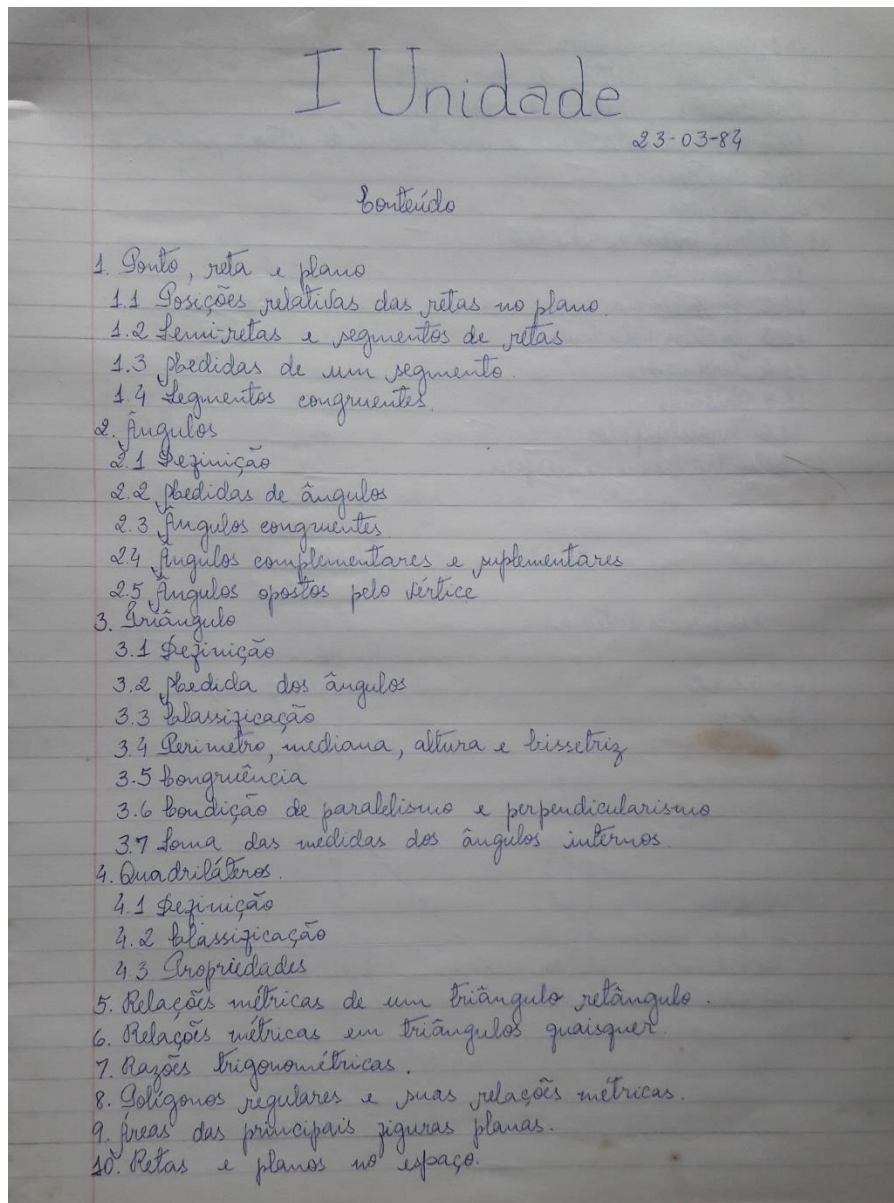 I Unidade
23-03-84
Conteúdo
1. Ponto, reta e plano
1.1 Posições relativas das retas no plano.
1.2 Semi-retas e segmentos de retas
1.3 Medidas de um segmento.
1.4 Segmentos congruentes.
2. Ângulos
2.1 Definição
2.2 Medidas de ângulos
2.3 Ângulos congruentes.
2.4 Ângulos complementares e suplementares
2.5 Ângulos opostos pelo vértice
3. Triângulo
3.1 Definição
3.2 Medida dos ângulos
3.3 Classificação
3.4 Perimetro, mediana, altura e bissetriz
3.5 Congruência
3.6 Condição de paralelismo e perpendicularismo
3.7 Soma das medidas dos ângulos internos.
4. Quadriláteros.
4.1 Definição
4.2 Classificação
4.3 Propriedades
5. Relações métricas de um triângulo retângulo.
6. Relações métricas em triângulos quaisquer.
7. Razões trigonométricas.
8. Polígonos regulares e suas relações métricas.
9. Áreas das principais figuras planas.
10. Retas e planos no espaço.